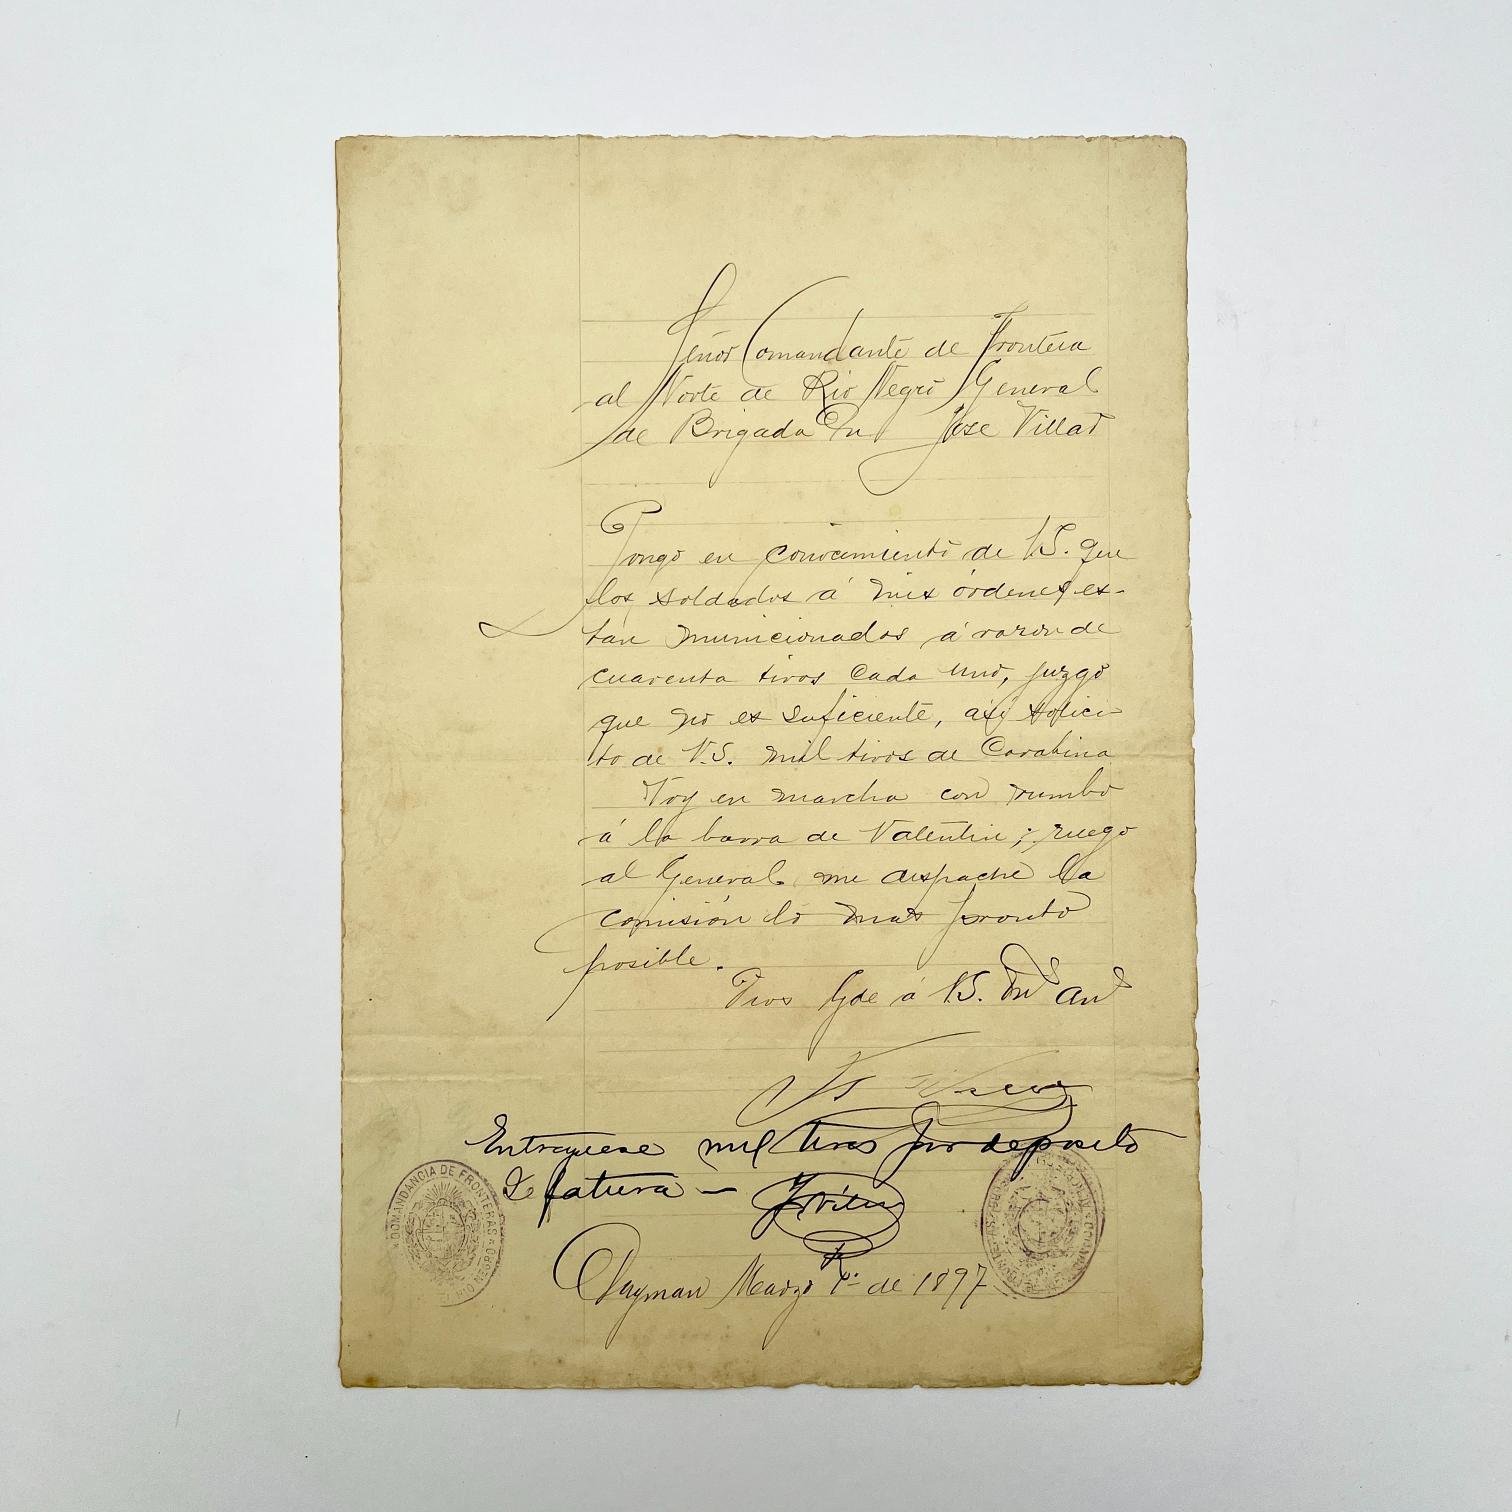 Señor Comandante de Frontera
al Norte de Rio Negro General
de Brigada Dn José Villar
Pongo en conocimiento de V.S. que
los soldados á mis órdenes es-
tán municionados á razon de
cuarenta tiros cada uno, juzgo
que no es suficiente, así solici-
to de V.S. mil tiros de Carabina
Voy en marcha con rumbo
á la barra de Valentin; ruego
al General me despache la
comisión lo mas pronto
posible.
Dios Gde á V.S. ms añs
Entreguese mil tiros por deposito
Jefatura —
COMANDANCIA DE FRONTERAS
Dayman Marzo 1o. de 1897